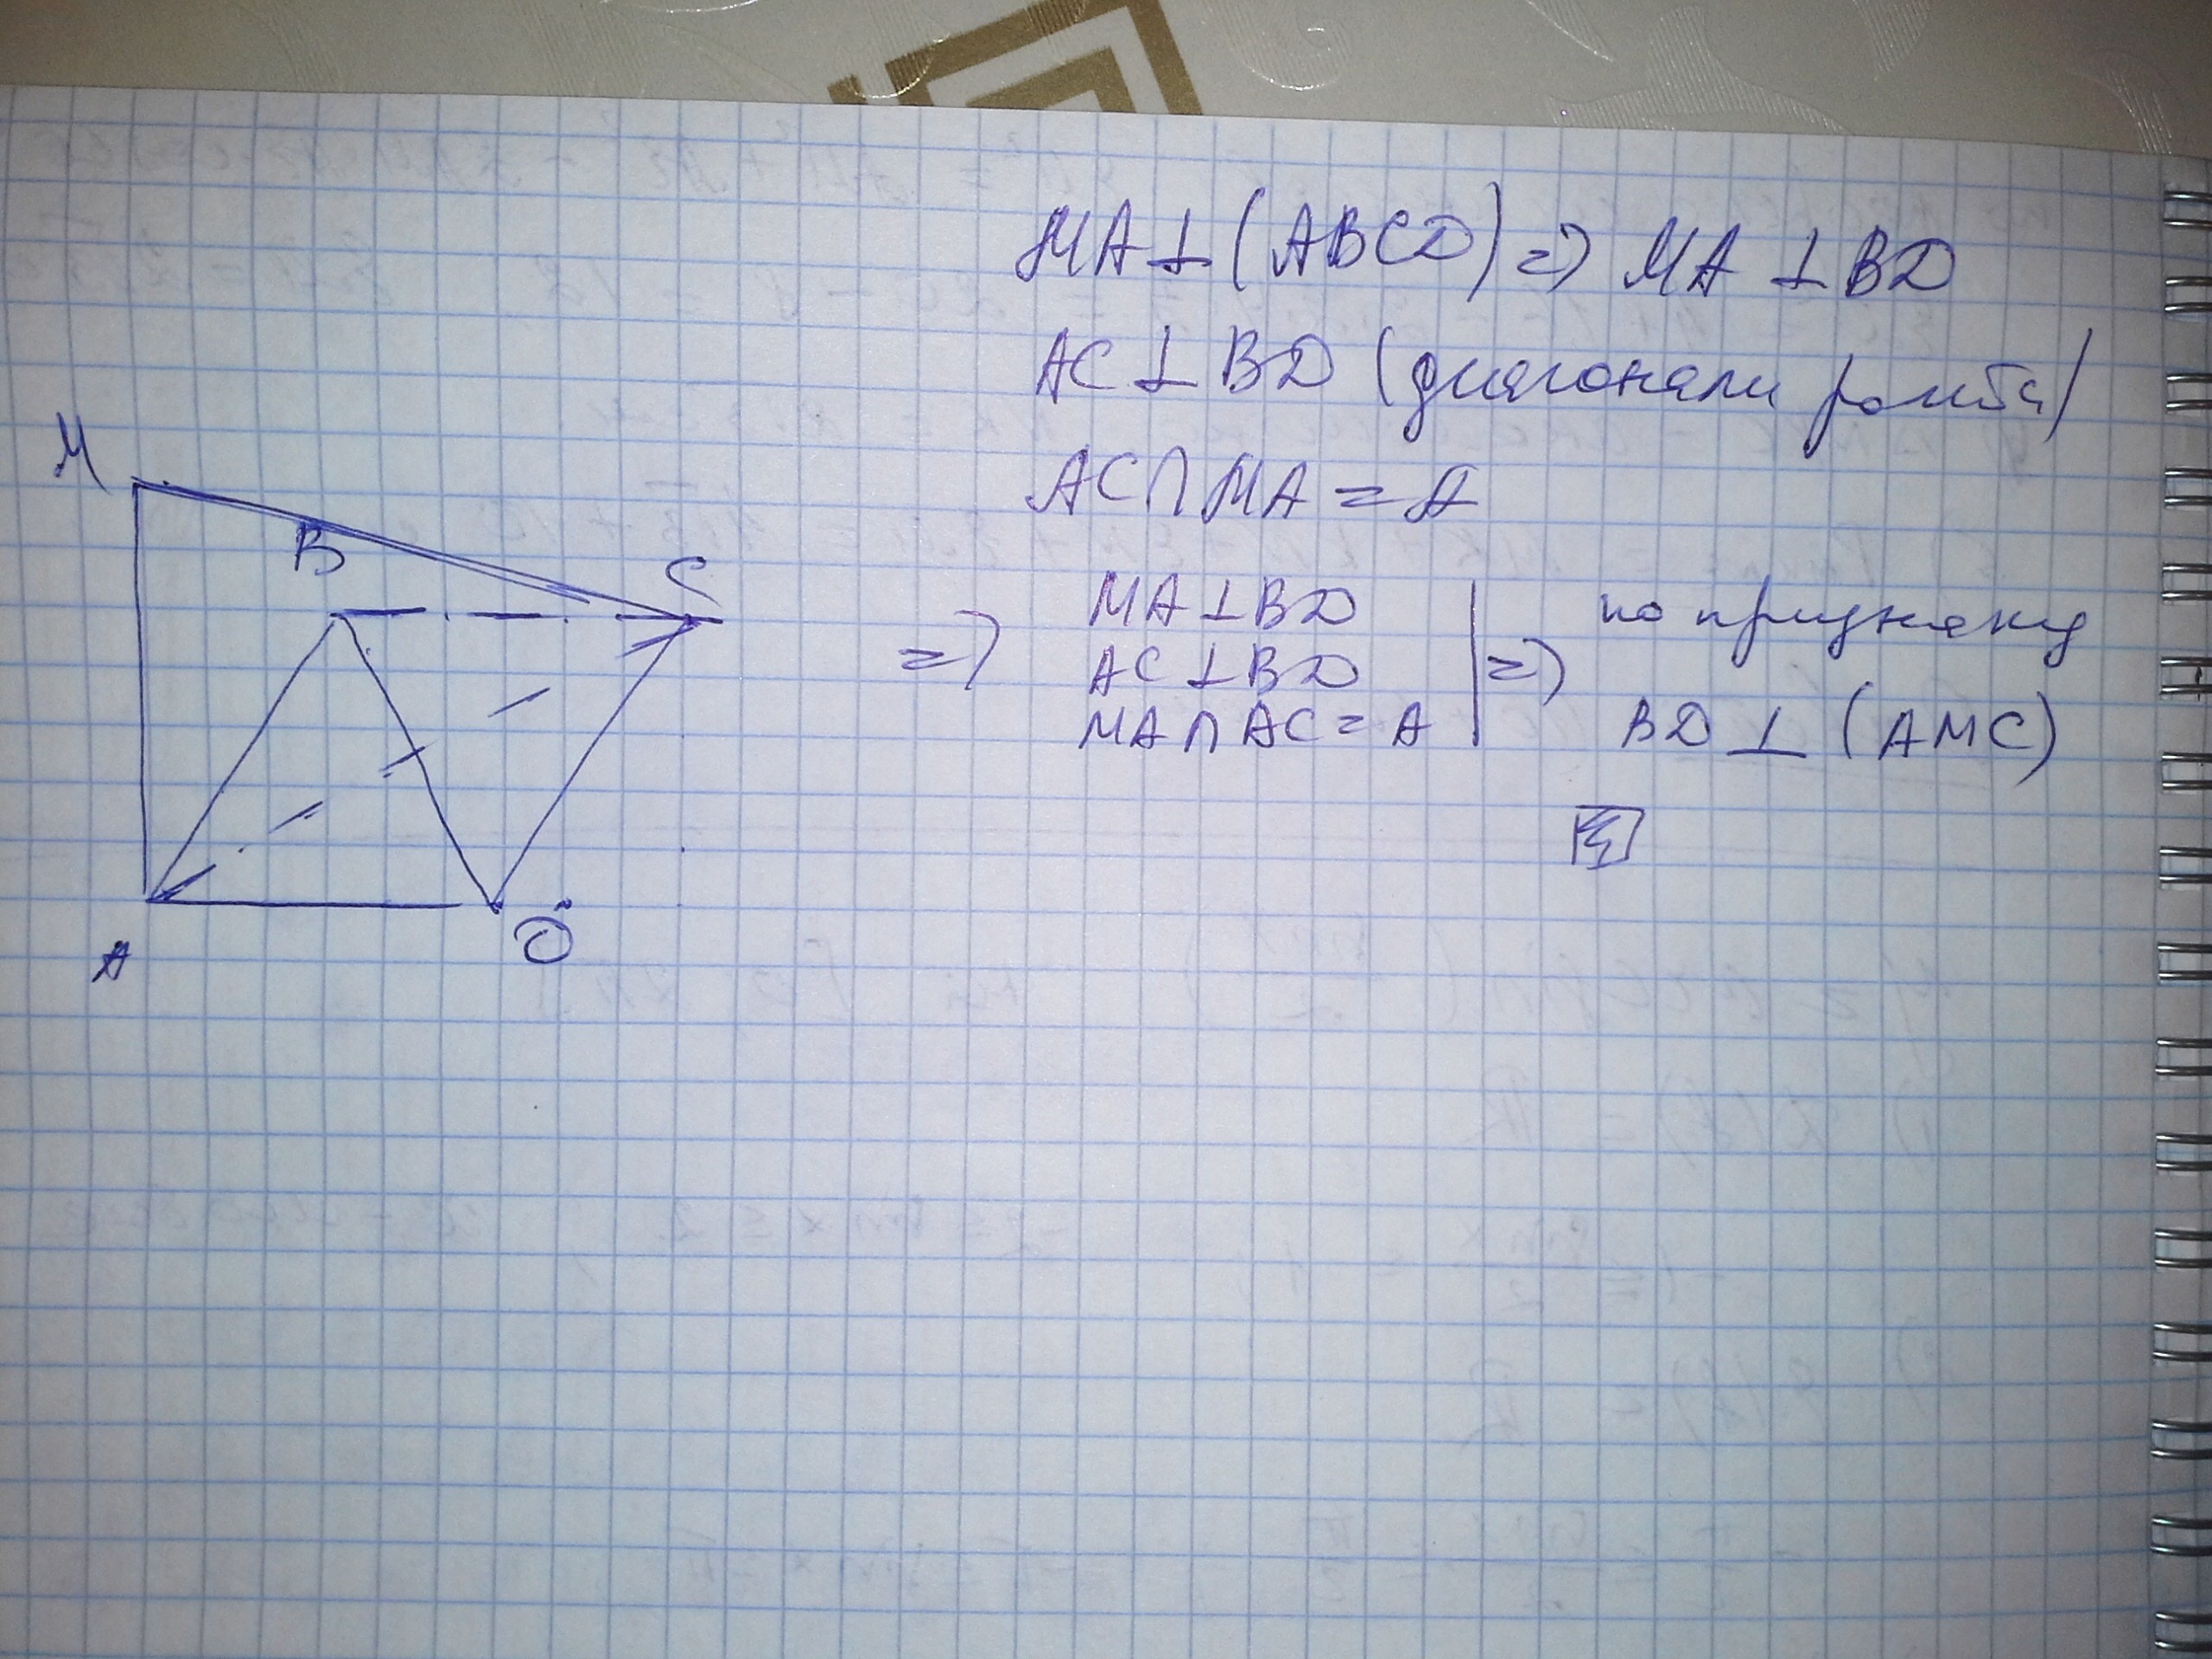 MA⊥(ABCD)=> MA⊥BD
AC⊥BD (диагонали ромба)
AC∩MA=A
=> MA⊥BD
AC⊥BD
MA∩AC=A
=> по признаку
BD⊥(AMC)
M
B
C
A
D